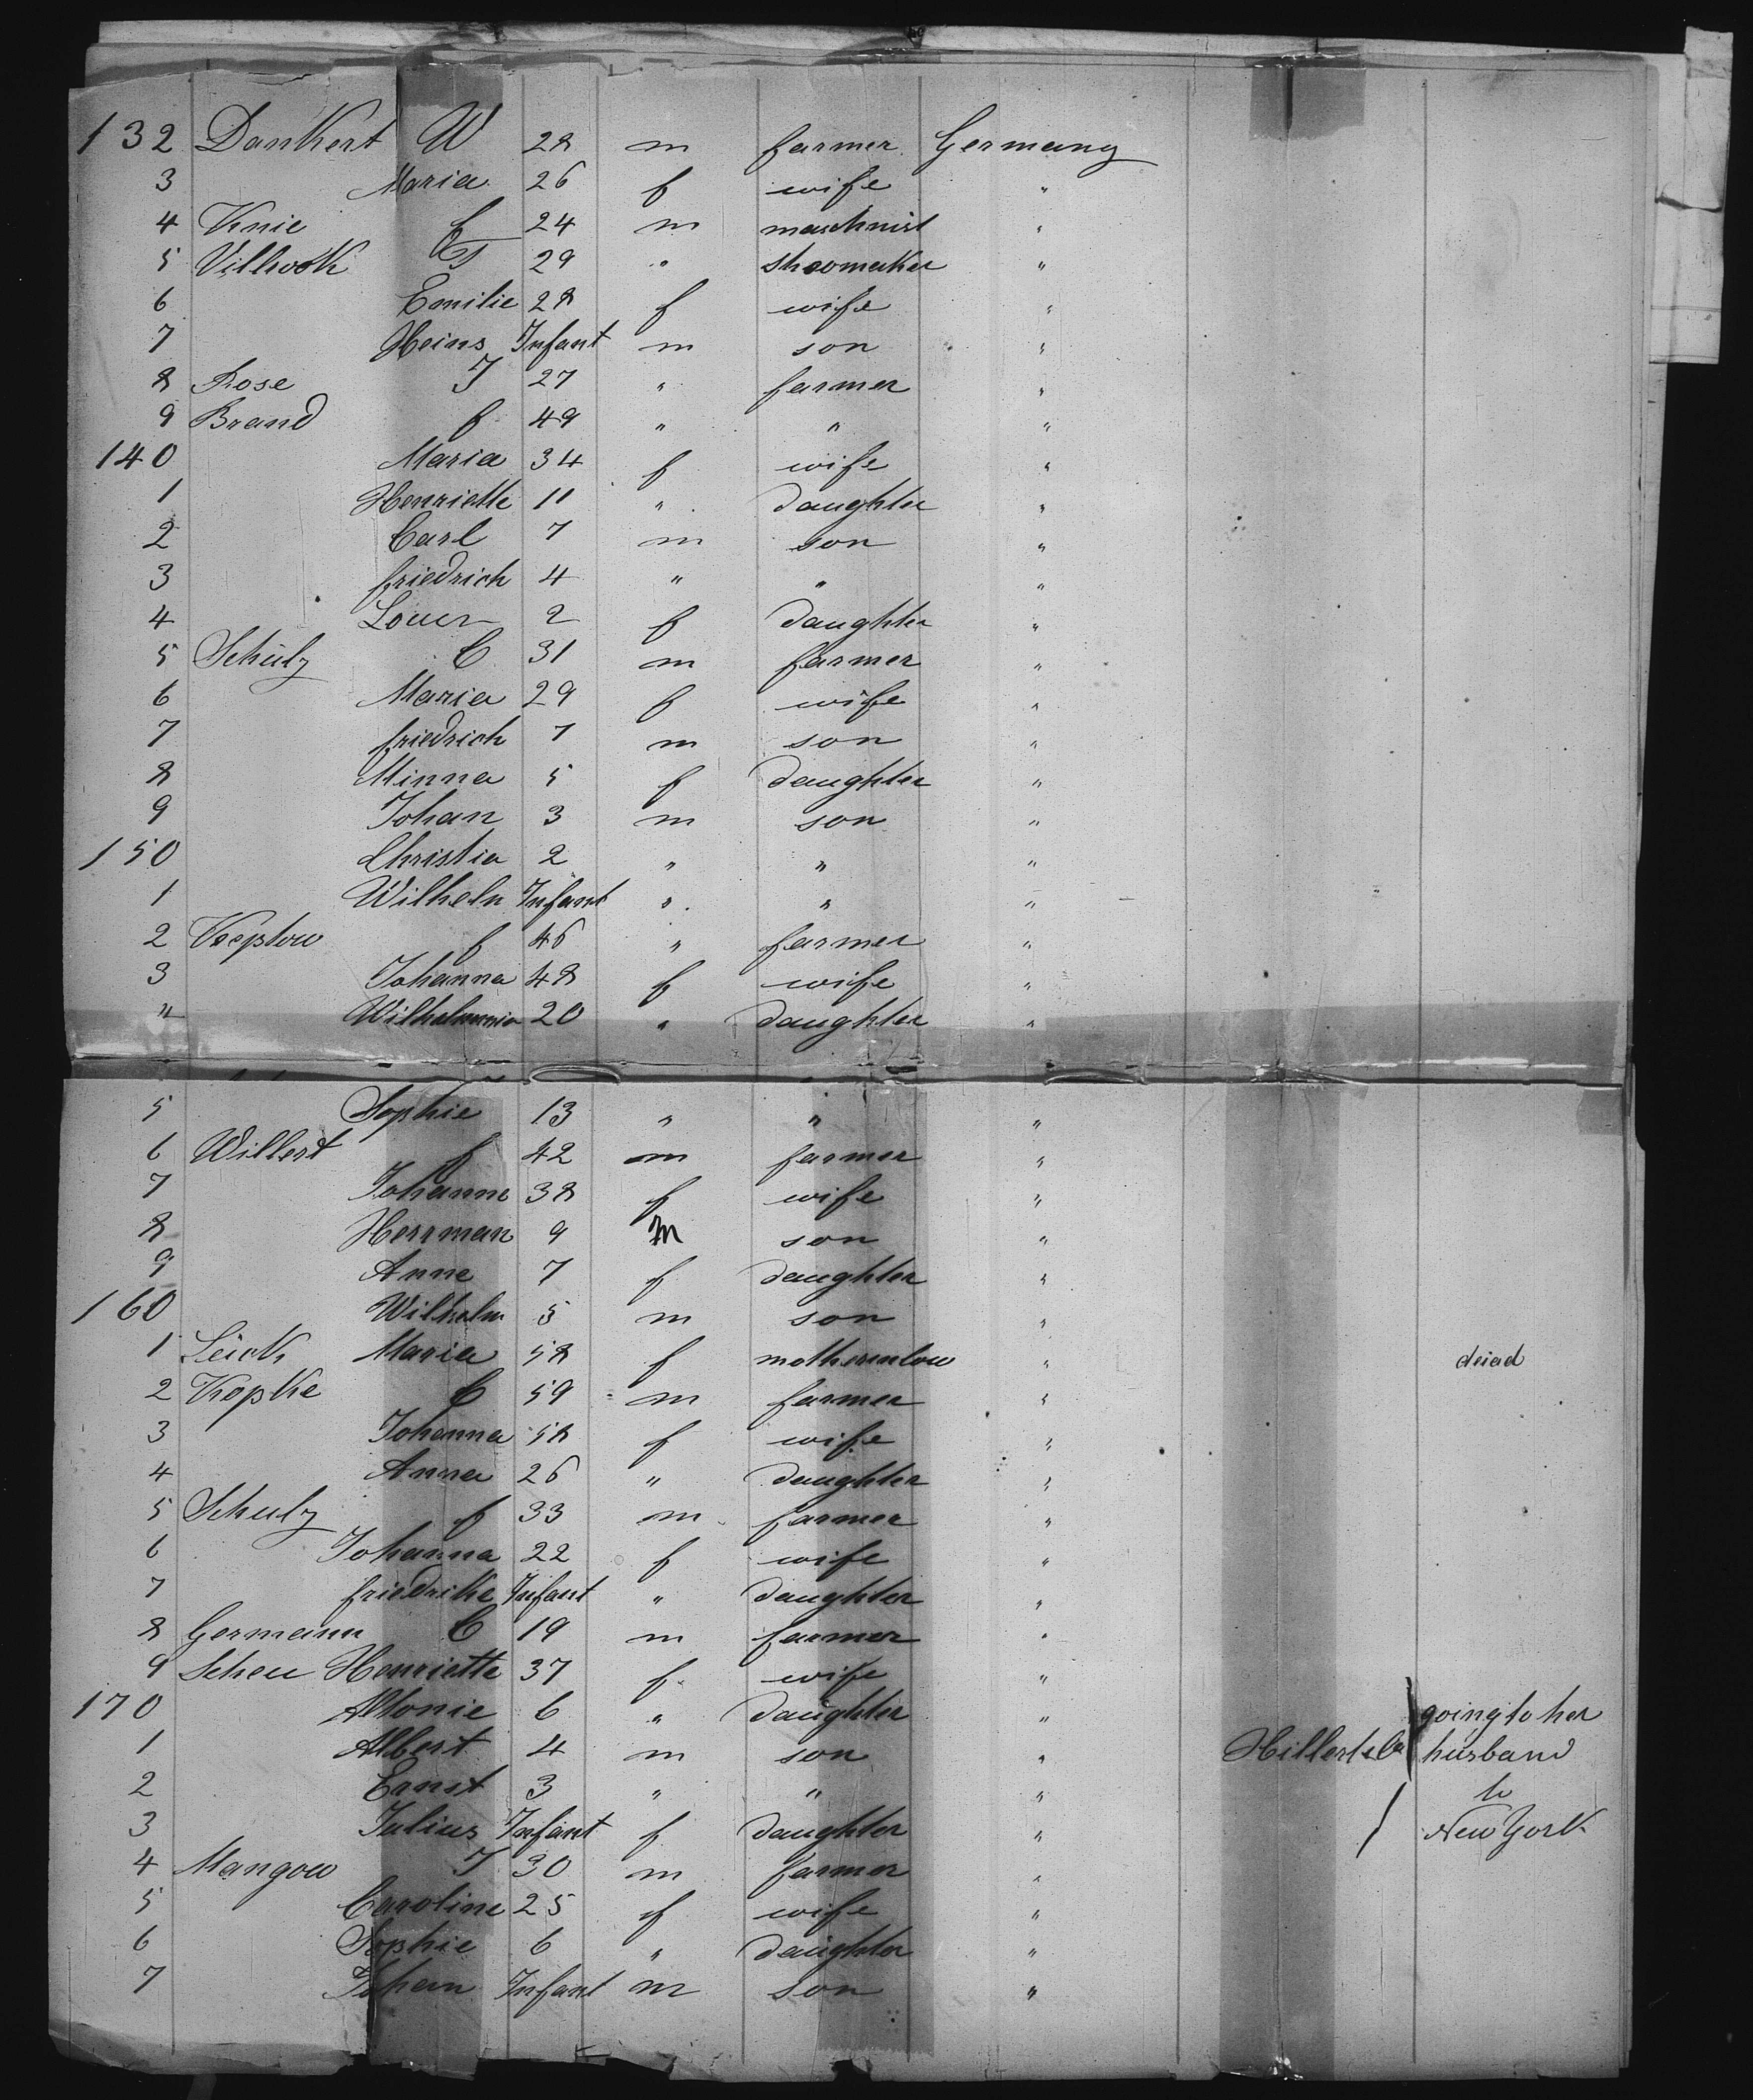 132 Dankert W 28 m farmer Germany
3 Maria 26 f wife "
4 Knie C 24 m maschnist "
5 Villwock G 29 " shoomaker "
6 Emilie 28 f wife "
7 Heins Infant m son "
8 Rose J 27 " farmer "
9 Brand f 49 " " "
140 Maria 34 f wife "
1 Henriette 11 " daughter "
2 Carl 7 m son "
3 friedrich 4 " " "
4 2 f daughter "
5 Schülz C 31 m farmer "
6 Maria 29 f wife "
7 friedrich 7 m son "
8 Minna 5 f daughter "
9 Johan 3 m son "
150 Christia 2 " " "
1 Wilhelm Infant " " "
2 f 46 " farmer "
3 Johanna 48 f wife "
4 20 " daughter "
5 Sophie 13 " " "
6 Willert f 42 m farmer "
7 Johanne 38 f wife "
8 Herrman 9 m son "
9 Anne 7 f daughter "
160 Wilhelm 5 m son "
1 Maria 58 f motherinlow " deiad
2 Kopke C 59 m farmer "
3 Johanna 58 f wife "
4 Anna 26 " daughter "
5 Schulz f 33 m farmer "
6 Johanna 22 f wife "
7 friedrike Infant " daughter "
8 Germann C 19 m farmer "
9 Scheu Henriette 37 f wife "
170 6 " daughter " going to her
1 Albert 4 m son " husband
2 Ernst 3 " " " to
3 Julius Infant f daughter " New York
4 Mangow J 30 m farmer "
5 Caroline 25 f wife "
6 Sophie 6 " daughter "
7 Johan Infant m son "